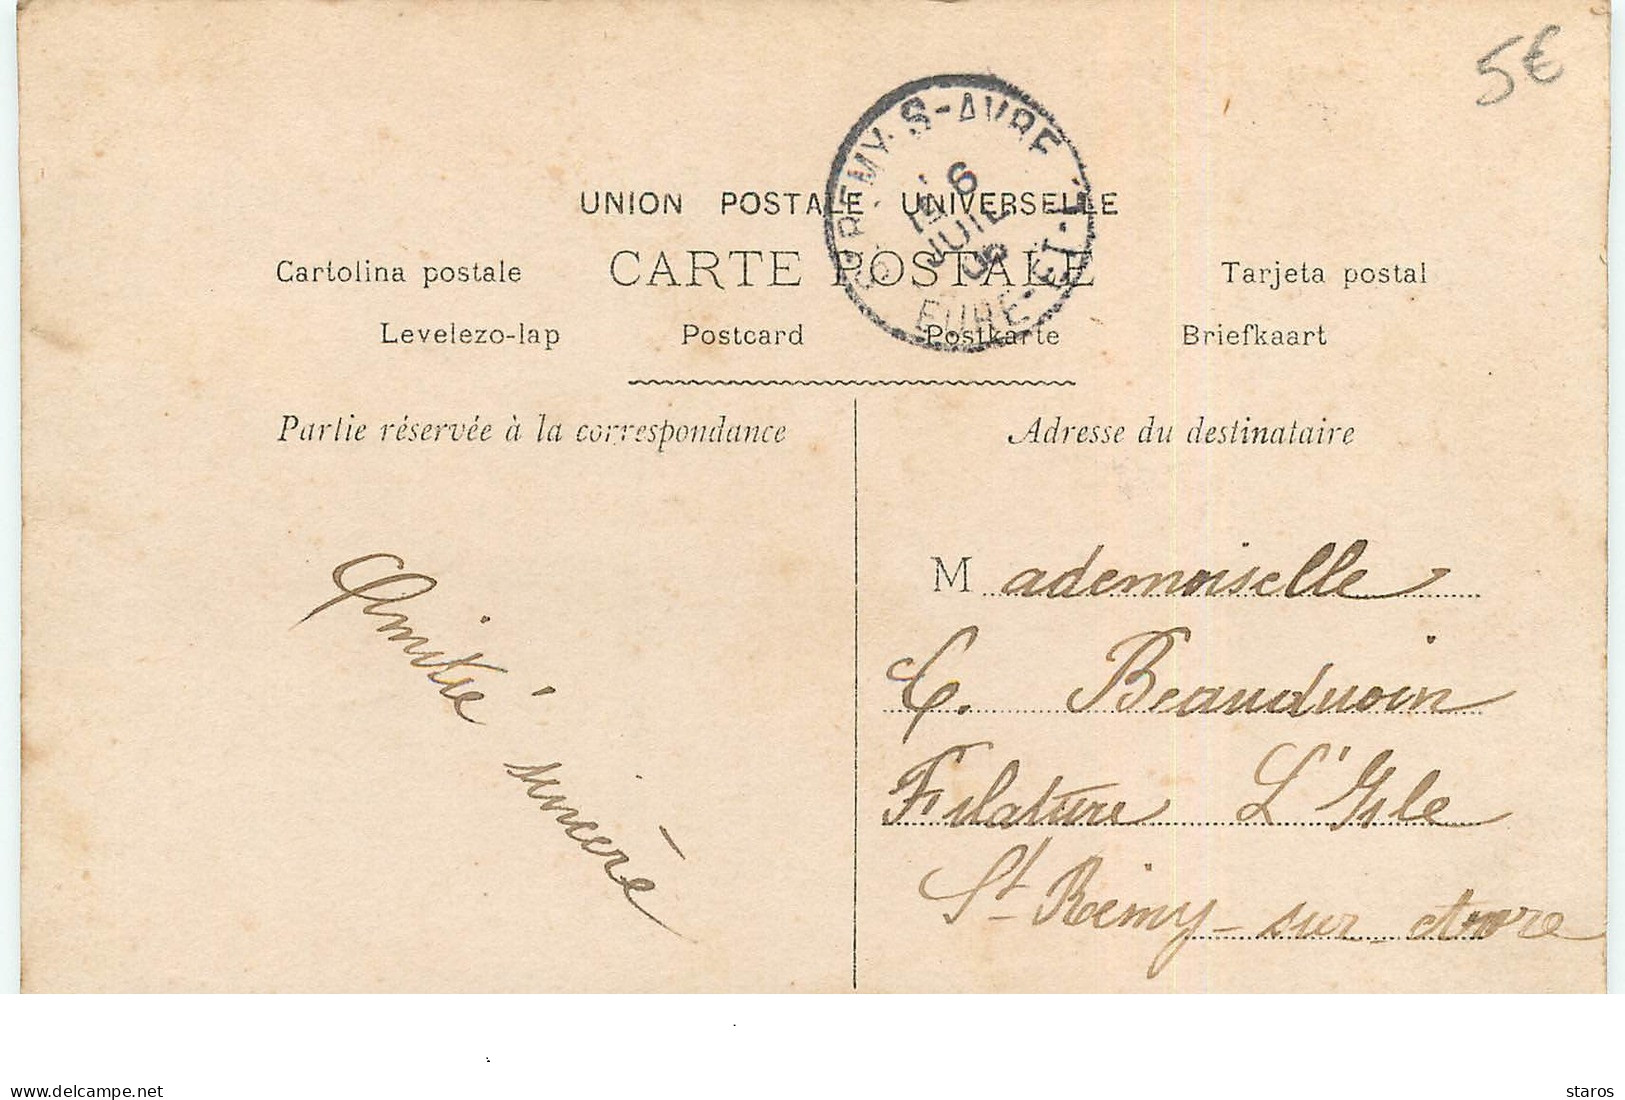 5€
UNION POSTALE UNIVERSELLE
CARTE POSTALE
Cartolina postale
Tarjeta postal
Levelezo-lap Postcard Postkarte Briefkaart
REMY-S-AVRE
6
JUIL
EURE-ET-L
Partie réservée à la correspondance
Adresse du destinataire
Amitié
sincère
Mademoiselle
C. Beauduoin
Filature L'Isle
St Rémy-sur-Avre
www.delcampe.net
staros